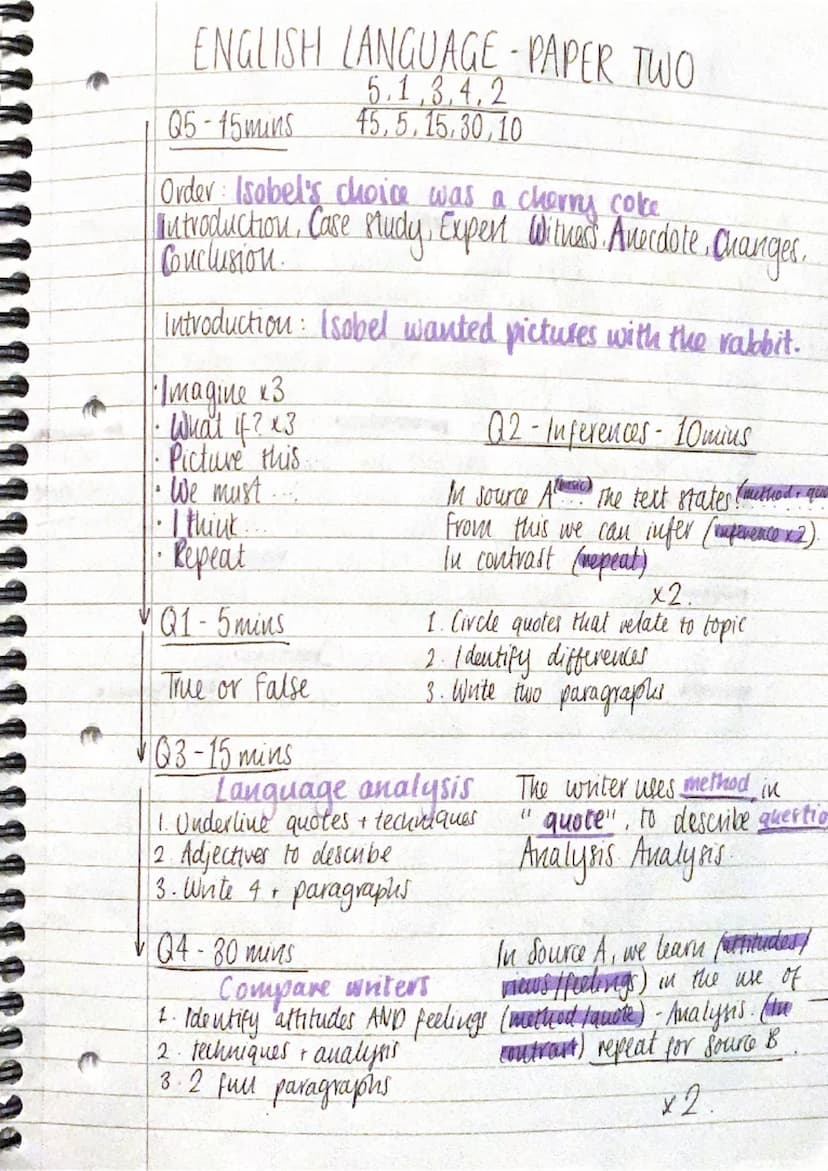 ENGLISH LANGUAGE - PAPER TWO
5, 1, 3, 4, 2
Q5 - 45mins 45, 5, 15, 30, 10
Order: Isobel's choice was a cherry coke
Introduction, Case study, Expert Witness, Anecdote, Changes,
Conclusion.
Introduction: Isobel wanted pictures with the rabbit.
· Imagine x3
· What if? x3
· Picture this...
· We must ....
· I think...
· Repeat
Q2 - Inferences - 10mins
In source A (basic) ... the text states: (method +
From this we can infer (inference x2).
In contrast (repeat)
x2.
1. Circle quotes that relate to topic
2. Identify differences
3. Write two paragraphs
Q1 - 5mins
True or False
Q3 - 15 mins
Language analysis
1. Underline quotes + techniques
2. Adjectives to describe
3. Write 4 + paragraphs
The writer uses method in
"quote", to describe questio
Analysis. Analysis.
Q4 - 30 mins
Compare writers
1. Identify attitudes AND feelings
2. techniques + analysis
3. 2 full paragraphs
In Source A, we learn (attitudes/
views/feelings) in the use of
(method/quote) - Analysis. (In
contrast) repeat for source B.
x2.